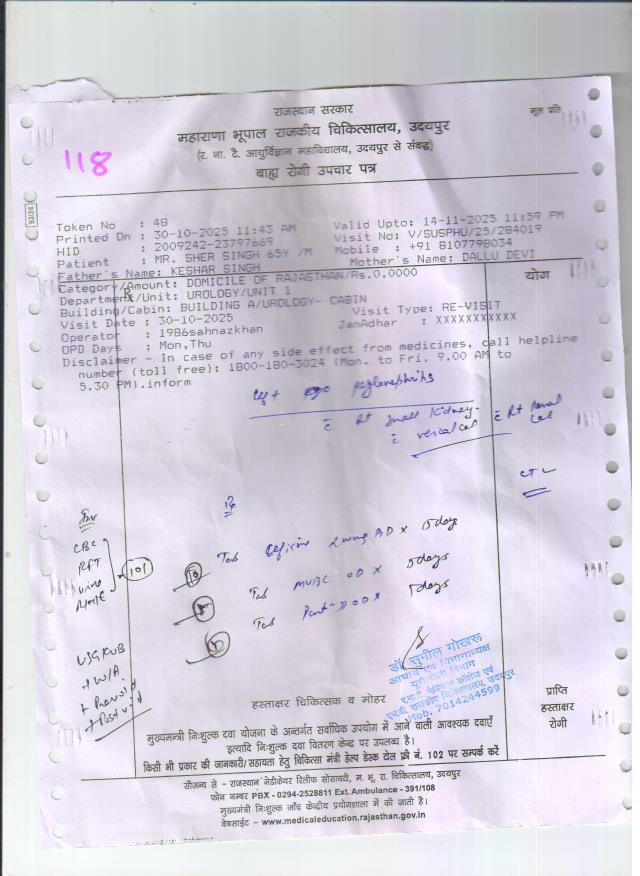 राजस्थान सरकार
मूल प्रति
महाराणा भूपाल राजकीय चिकित्सालय, उदयपुर
(र. ना. टै. आयुर्विज्ञान महाविद्यालय, उदयपुर से संबद्ध)
बाह्य रोगी उपचार पत्र
118
93/24
Token No : 48
Printed On : 30-10-2025 11:43 AM Valid Upto: 14-11-2025 11:59 PM
HID : 2009242-23797669 Visit No: V/SUSPHU/25/284019
Patient : MR. SHER SINGH 65Y /M Mobile : +91 8107798034
Father's Name: KESHAR SINGH Mother's Name: DALLU DEVI
Category/Amount: DOMICILE OF RAJASTHAN/Rs.0.0000
योग
Department/Unit: UROLOGY/UNIT 1
Building/Cabin: BUILDING A/UROLOGY- CABIN
Visit Date : 30-10-2025 Visit Type: RE-VISIT
Operator : 1986sahnazkhan JanAdhar : XXXXXXXXXXX
OPD Days : Mon,Thu
Disclaimer - In case of any side effect from medicines, call helpline
number (toll free): 1800-180-3024 (Mon. to Fri. 9.00 AM to
5.30 PM).inform
Rt small kidney
Rt renal
cal
Inv
CBC
RFT
urine
101
Tab BD x 15 days
10
Tab MVBC OD x 5 days
5
Tab Pant-D OD x 5 days
USG KUB
+ W/A
+ Prevoid
+ Postvoid
डॉ. सुनील गोखरू
आचार्य एवं विभागाध्यक्ष
यूरोलॉजी विभाग
Mob. 7014244599
हस्ताक्षर चिकित्सक व मोहर
प्राप्ति
हस्ताक्षर
रोगी
मुख्यमन्त्री निःशुल्क दवा योजना के अन्तर्गत सर्वाधिक उपयोग में आने वाली आवश्यक दवाएँ
इत्यादि निःशुल्क दवा वितरण केन्द्र पर उपलब्ध है।
किसी भी प्रकार की जानकारी/सहायता हेतु चिकित्सा मंत्री हेल्प डेस्क टोल फ्री नं. 102 पर सम्पर्क करें
सौजन्य से - राजस्थान मेडीकेयर रिलीफ सोसायटी, म. भू. रा. चिकित्सालय, उदयपुर
फोन नम्बर PBX - 0294-2528811 Ext. Ambulance - 391/108
मुख्यमंत्री निःशुल्क जाँच केन्द्रीय प्रयोगशाला में की जाती है।
वेबसाईट - www.medicaleducation.rajasthan.gov.in